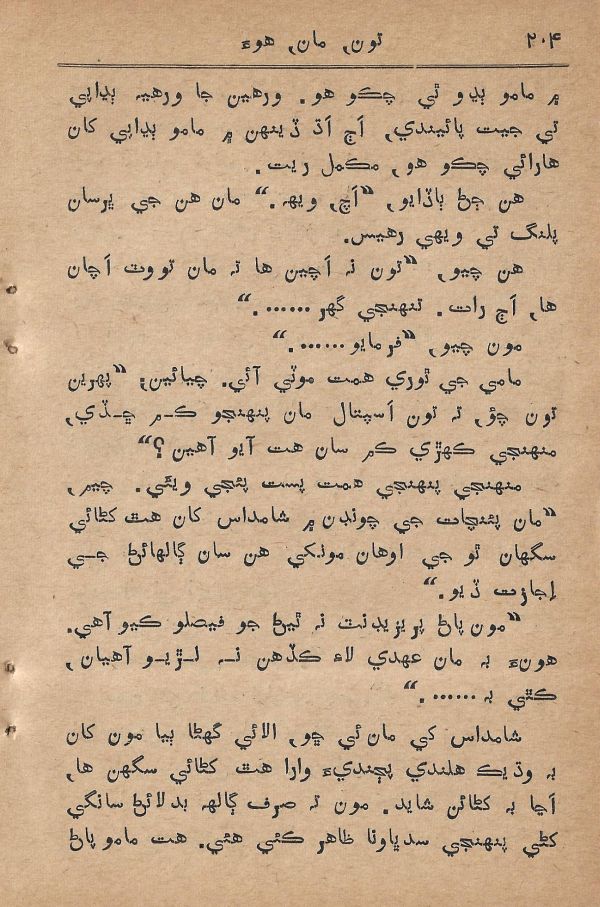 ۲۰۴ تون, مان, هوءَ
۾ مامو ٻڍو ٿي چڪو هو. ورهين جا ورهيہ ٻڍاپي
تي جيت پائيندي, اڄ اڌ ڏينهن ۾ مامو ٻڍاپي کان
هارائي چڪو هو, مڪمل ريت.
هن ڄڻ ٻاڏايو, “اچ, ويهہ.“ مان هن جي ڀرسان
پلنگ تي ويهي رهيس.
هن چيو, “تون نہ اچين ها تہ مان تووٽ اچان
ها, اڄ رات. تنهنجي گهر.......“
مون چيو, “فرمايو.......“
مامي جي ٿوري همت موٽي آئي. چيائين; “پهرين
تون چؤ, تہ تون اسپتال مان پنهنجو ڪـم ڇـڏي,
منهنجي ڪهڙي ڪم سان هت آيو آهين؟“
منهنجي پنهنجي همت پست پئجي ويئي. چيم,
“مان پئنچات جي چونڊن ۾ شامداس کان هٿ کڻائي
سگهان ٿو جي اوهان مونکي هن سان ڳالهائڻ جـي
اجازت ڏيو.“
“مون پاڻ پريزيڊنٽ نہ ٿيڻ جو فيصلو ڪيو آهي.
هونءَ بہ مان عهدي لاءِ ڪڏهن نـہ لـڙيـو آهيان,
ڪٿي بہ.......“
شامداس کي مان ئي ڇو, الائي گهڻا ٻيا مون کان
بہ وڌيڪ هلندي پڄنديءَ وارا هٿ کڻائي سگهن ها,
اڃا بہ کڻائن شايد. مون تہ صرف ڳالهہ بدلائڻ سانگي
کڻي پنهنجي سدڀاونا ظاهر ڪئي هئي. هت مامو پاڻ